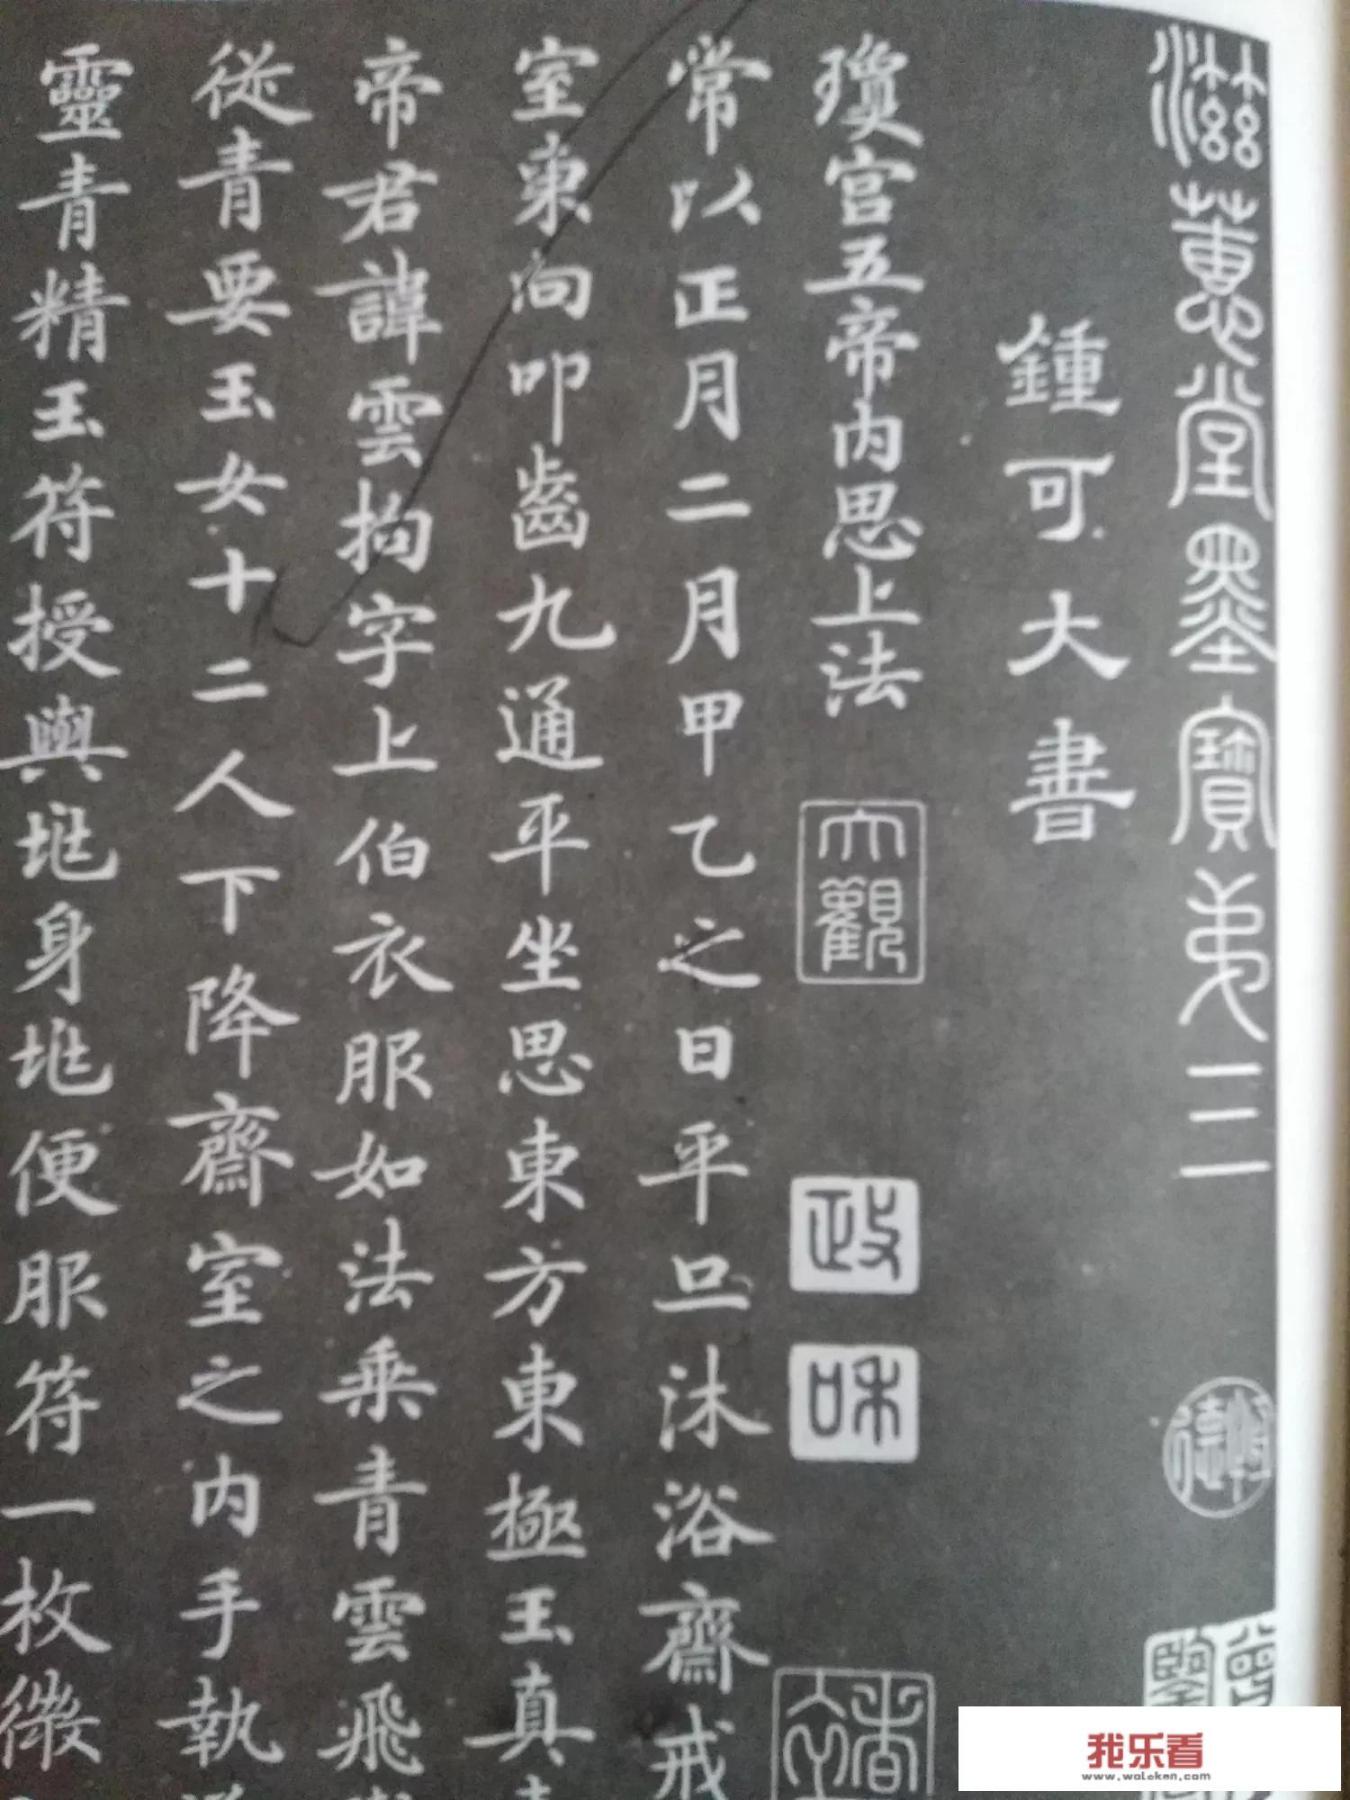 滋蕙堂墨寶弟三
鍾可大書
瓊宮五帝内思上法
大觀
政
和
常以正月二月甲乙之日平旦沐浴齋戒
室東向叩齒九通平坐思東方東極玉真
帝君諱雲拘字上伯衣服如法乘青雲飛
從青要玉女十二人下降齋室之内手執
靈青精玉符授與兆身兆便服符一枚微
我乐看
www.woleken.com